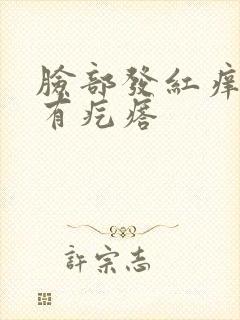 臉部發紅痒
有疙瘩
許宗志